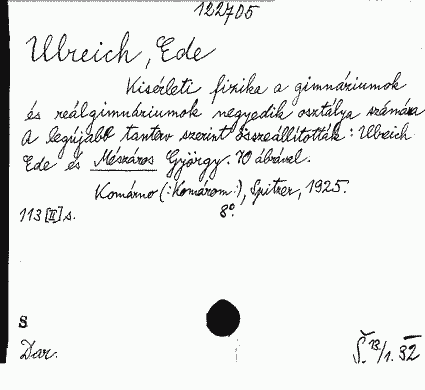 122705
Ulreich, Ede
Kisérleti fizika a gimnáriumok
és reálgimnáriumok negyedik osztálya számára
A legújabb tanterv szerint összeállították: Ulreich
Ede és Mészáros György. 70 ábrával.
Komárno (:Komárom:), Spitzer, 1925.
113 [II] s. 8°.
S
Dar. Š. 13/1. 32